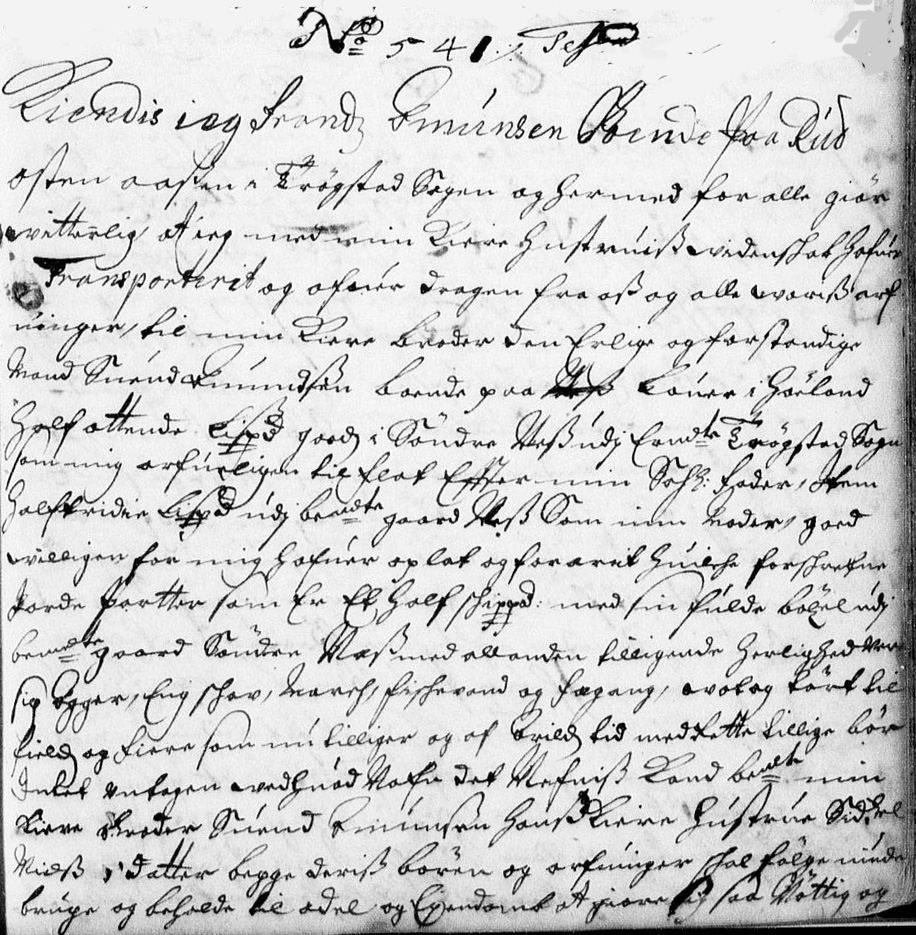 No 541
Kiendis ieg Frandz Emunsen Boende Paa Rud
østen aasen i Trøgstad Sogen og hermed for alle giør
vitterlig at ieg med min Kiere Hustruiss videnskab hafuer
Transporterit og ofuer dragen fra oss og alle voriss arf
uinger, til min Kiere broder den Erlige og forstandige
Mand Suend Emundsen boende paa Løuer i Høeland
Half ottende Lispd goedz i Søndre Næss udj Ermdte Trøgstad Sogn
som mig arfueligen til falt Effter min Sahl: fader, Item
halftridie Lispd udj bemdte gaard Næss Som min moder, goed
villigen for mig hafuer oplat og forærit huilche forschrefne
Jorde Partter som Er Et half schippd: med sin fulde bøxel udj
bemdte gaard Søndre Næss med all anden tilligende Herlighed være
sig Agger, Eng schov, March, fischevand og fægang, vot og tørt til
field og fiere som nu tilliger og af Arilds tid med rette tillige bør
Intet untagen ved huad Nafn det Nefniss Kand bemdte min
kiere Broder Suend Emunsen hans Kiere Hustrue Sidzel
Nielss datter begge deriss børen og arfuinger skal følge niude
bruge og beholde til odel og Eyendomb at giøre sig saa Nøttig og